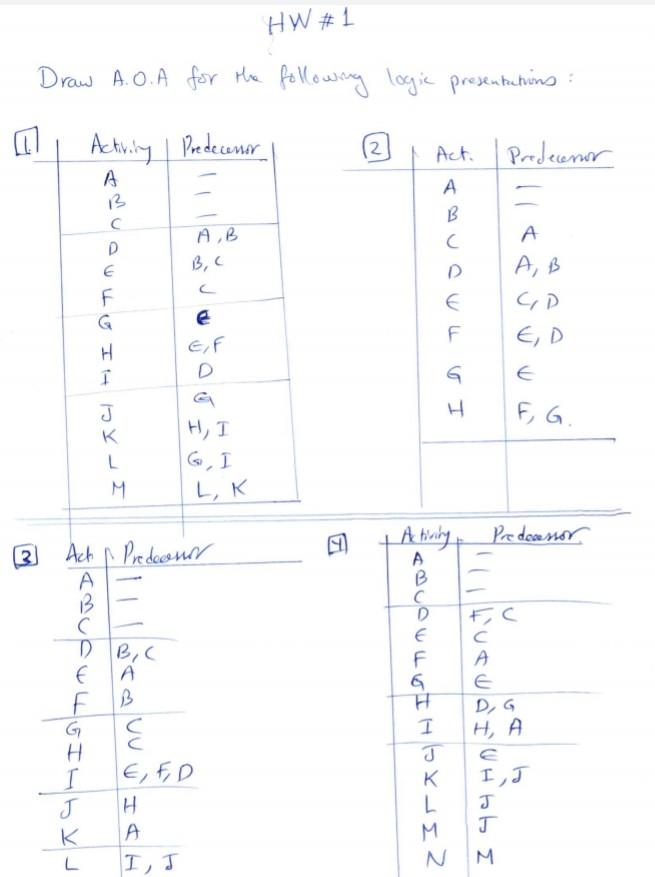 HW # 1
Draw A.O.A for the following logic presentations :
1 Activity Predecessor
A —
B —
C —
D A, B
E B, C
F C
G e
H E, F
I D
J G
K H, I
L G, I
M L, K
2 Act. Predecessor
A —
B —
C A
D A, B
E C, D
F E, D
G E
H F, G.
3 Act Predecessor
A —
B —
C —
D B, C
E A
F B
G C
H C
I E, F, D
J H
K A
L I, J
4 Activity Predecessor
A —
B —
C —
D F, C
E C
F A
G E
H D, G
I H, A
J E
K I, J
L J
M J
N M